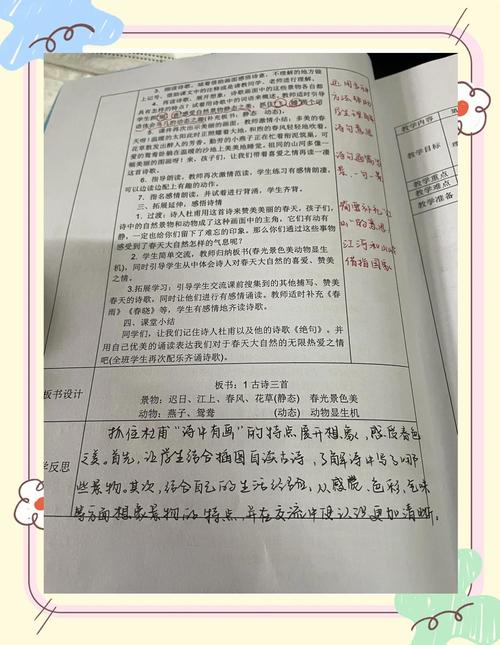 3. 细读诗歌，试着借助画面感悟诗意，不理解的地方做
上记号，借助课文中的注释或是请教同学、老师进行理解。
4. 再读诗歌，展开想象：诗歌画面中的这些景物各自都
具有怎样的特点？试着用诗歌中的词语来概述，教师适时引导
学生
感受自然景物静态之美，抓住
语体会鸟儿的动态之趣(并
板书：静态 动态)。
5. 课件再次出示美丽的画面，教师激情小结：多美的春
天呀！温暖的太阳此时正照耀着大地，和煦的春风轻轻地吹着，
花草散发出醉人的芳香，勤劳的小燕子正在忙着衔泥筑巢，可
爱的鸳鸯静躺在温暖的沙地上美美地睡觉，相间的山河多像一
幅美丽的图画呀！来，孩子们，让我们带着喜爱之情再读一读
这首诗歌。
6. 指导朗读，教师再次激情范读，学生练习有感情朗读，
可以边读边配上有趣的动作。
7. 指名感情朗读，并试着进行背诵，学生齐背。
三、拓展延伸，感悟诗情
1. 过渡：诗人杜甫用这首诗来赞美美丽的春天，孩子们，
诗中的自然景物和动物成了这首诗中画面的主角，它们有动有
静，一定也给你们留下了难忘的印象，那么你们通过这些事物
感受到了春天大自然怎样的气息呢？
2. 学生简单交流，教师归纳板书(春光景色美动物显生
机)，同时引导学生从中体会诗人对春天大自然的喜爱、赞美
之情。
3.拓展学习：引导学生交流课前搜集到的其他描写、赞美
春天的诗歌，同时让他们进行有感情诵读。教师适时补充《春
雨》《春晓》等，学生有感情地齐读诗歌。
四、课堂小结
同学们，让我们记住诗人杜甫以及他的诗歌《绝句》。并
用自己优美的诵读表达我们对于春天大自然的无限热爱之情
吧(全班学生再次配乐齐诵诗歌)。
板书设计
板书：1 古诗三首
景物：迟日、江上、春风、花草(静态) 春光景色美
动物：燕子、鸳鸯 (动态) 动物显生机
学反思
抓住杜甫“诗中有画”的特点展开想象，感受春色
之美。首先，让学生结合插图自读古诗，了解诗中写了哪
些景物。其次，结合自己的生活经验，从感觉，色彩，气味
等方面想象景物的特点，并在交流中使认识更加清晰。
江河和山
借指国家
教学内容
教学目标
教学重点
教学难点
教学准备